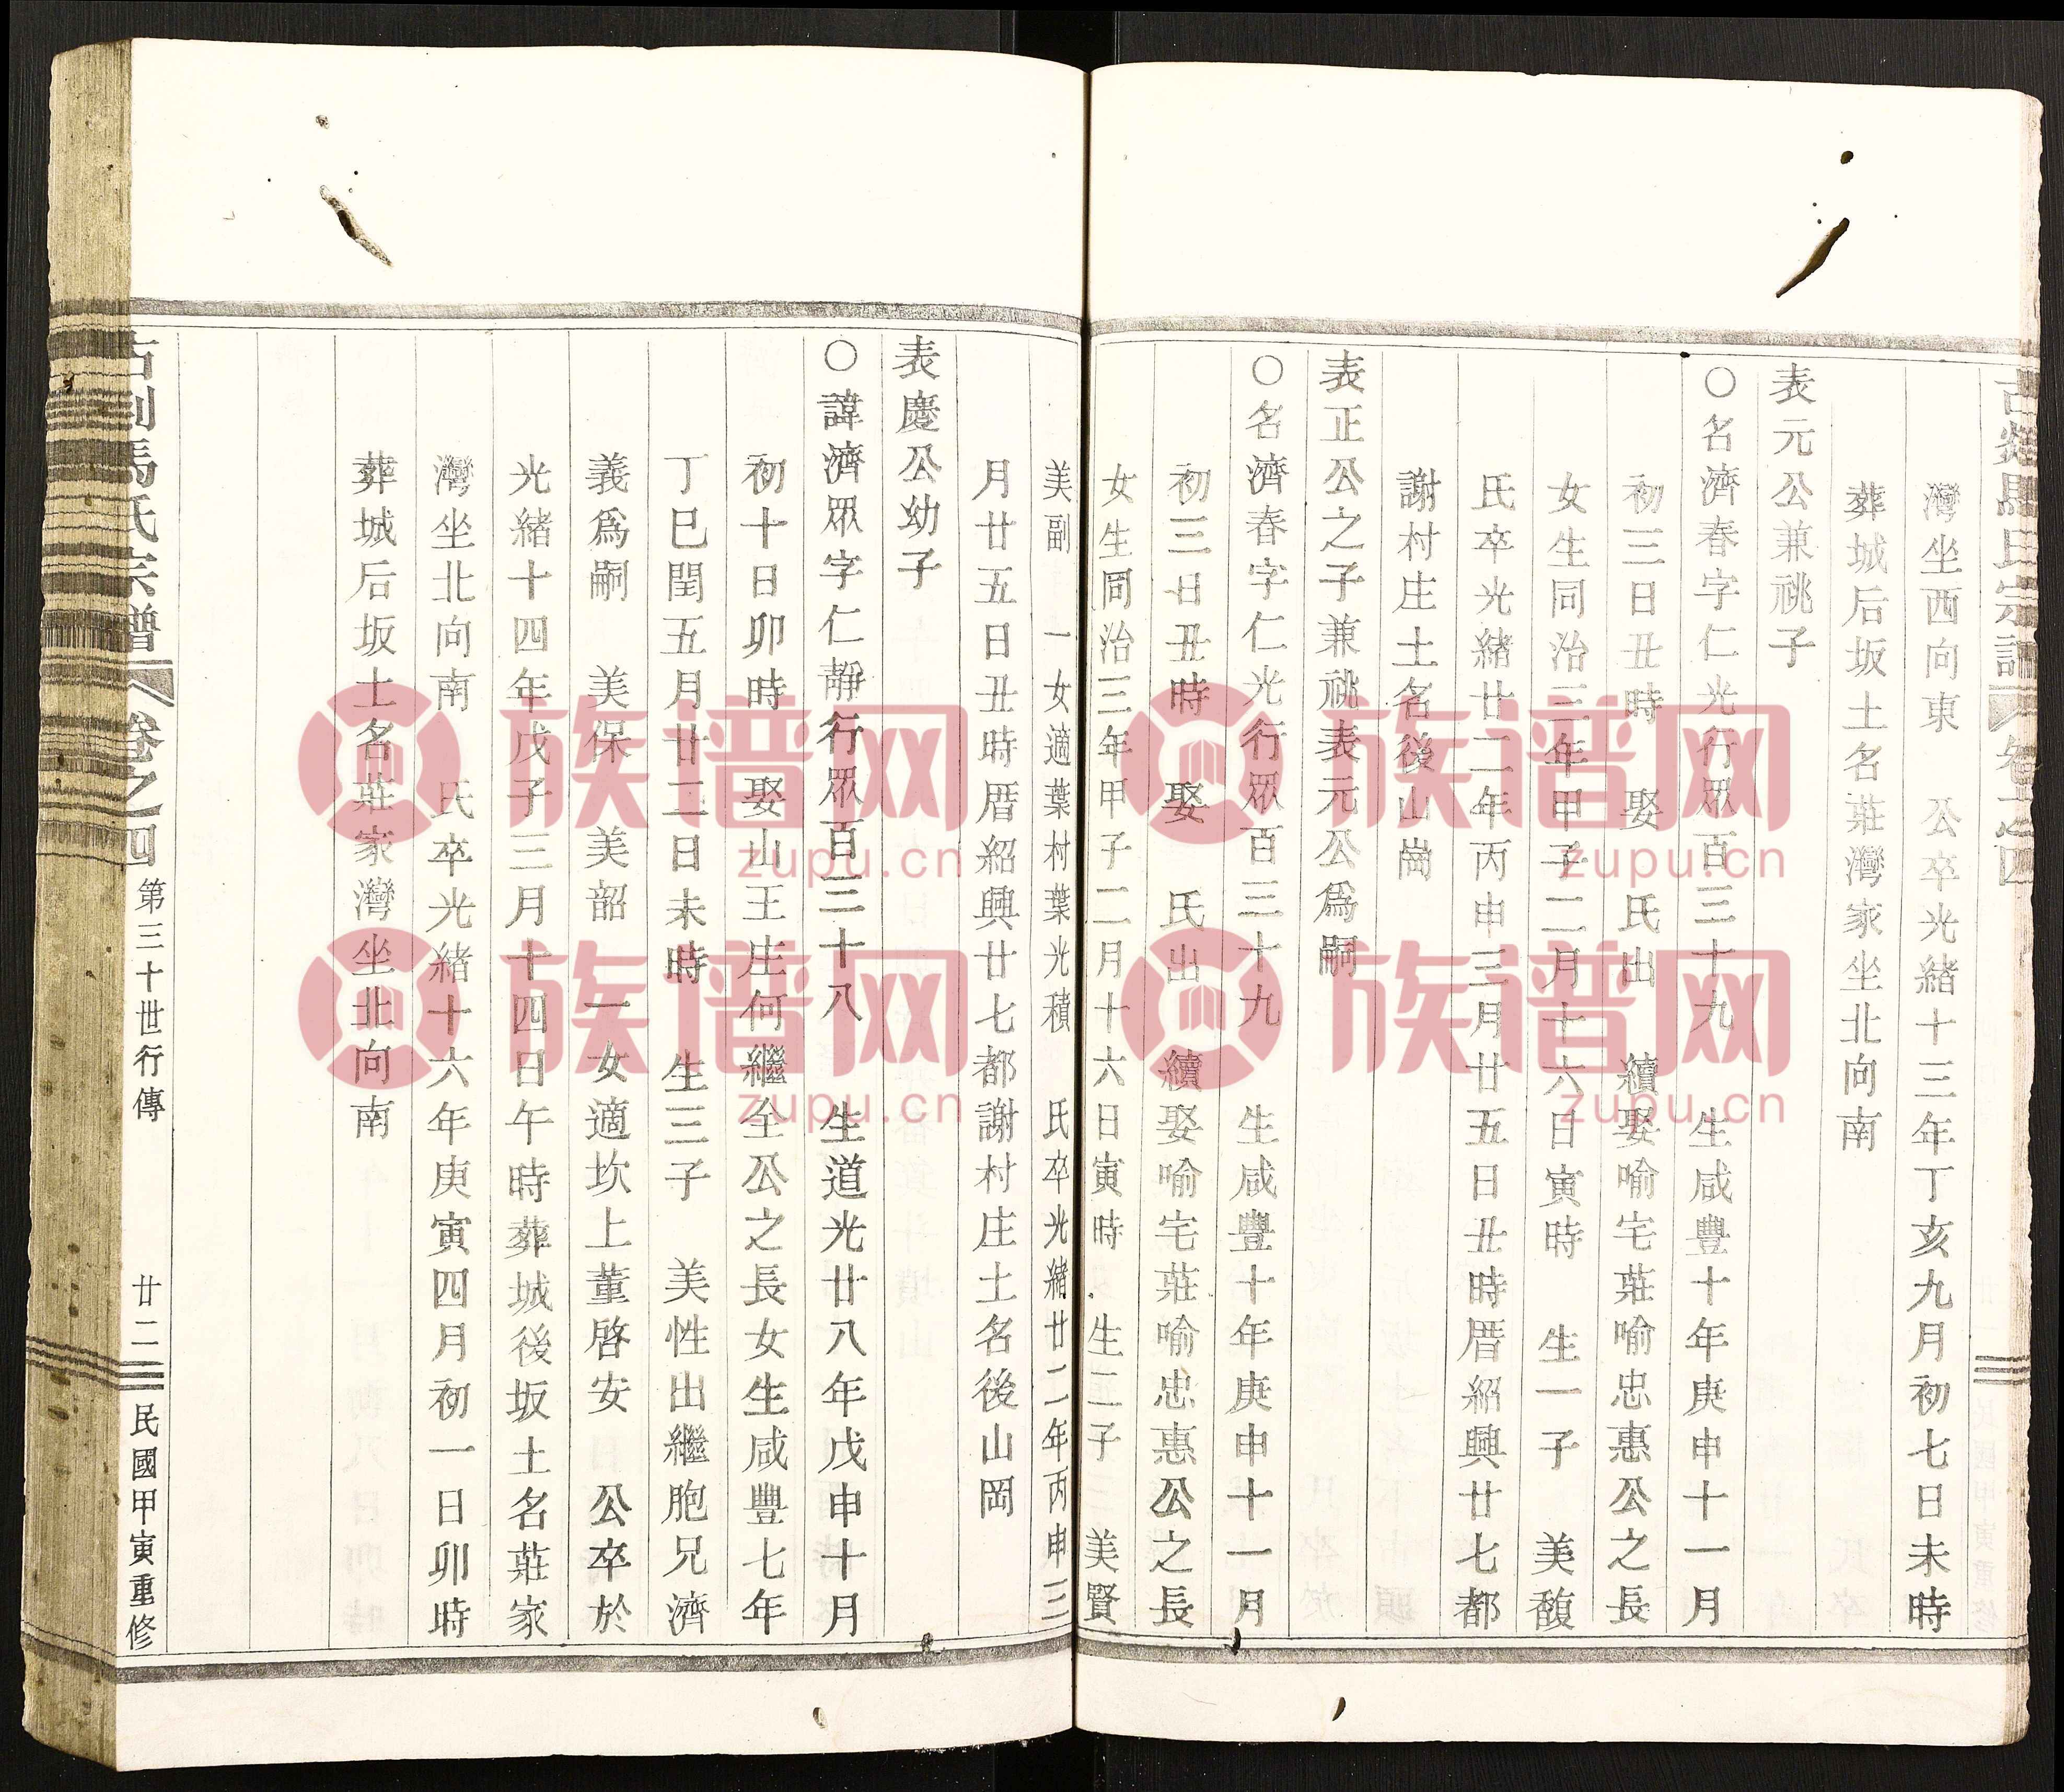 灣坐西向東　公卒光緒十三年丁亥九月初七日未時
葬城后坂土名莊灣家坐北向南
表元公兼祧子
○名濟春字仁光行眾百三十九　生咸豐十年庚申十一月
初三日丑時　娶　氏出　續娶喻宅莊喻忠惠公之長
女生同治三年甲子二月十六日寅時　生一子　美馥
氏卒光緒廿二年丙申三月廿五日丑時厝紹興廿七都
謝村庄土名後山崗
表正公之子兼祧表元公為嗣
○名濟春字仁光行眾百三十九　生咸豐十年庚申十一月
初三日丑時　娶　氏出　續娶喻宅莊喻忠惠公之長
女生同治三年甲子二月十六日寅時　生二子　美賢
美副　一女適葉村葉光積　氏卒光緒廿二年丙申三
月廿五日丑時厝紹興廿七都謝村庄土名後山岡
表慶公幼子
○諱濟眾字仁靜行眾百三十八　生道光廿八年戊申十月
初十日卯時　娶山王庄何繼全公之長女生咸豐七年
丁巳閏五月廿二日未時　生三子　美性出繼胞兄濟
義爲嗣　美保　美韶　一女適坎上董啓安　公卒於
光緒十四年戊子三月十四日午時葬城後坂土名莊家
灣坐北向南　氏卒光緒十六年庚寅四月初一日卯時
葬城后坂土名莊家灣坐北向南
馬氏宗譜　卷之四　第三十世行傳　廿二　民國甲寅重修
族谱网
zupu.cn
族谱网
zupu.cn
族谱网
zupu.cn
族谱网
zupu.cn